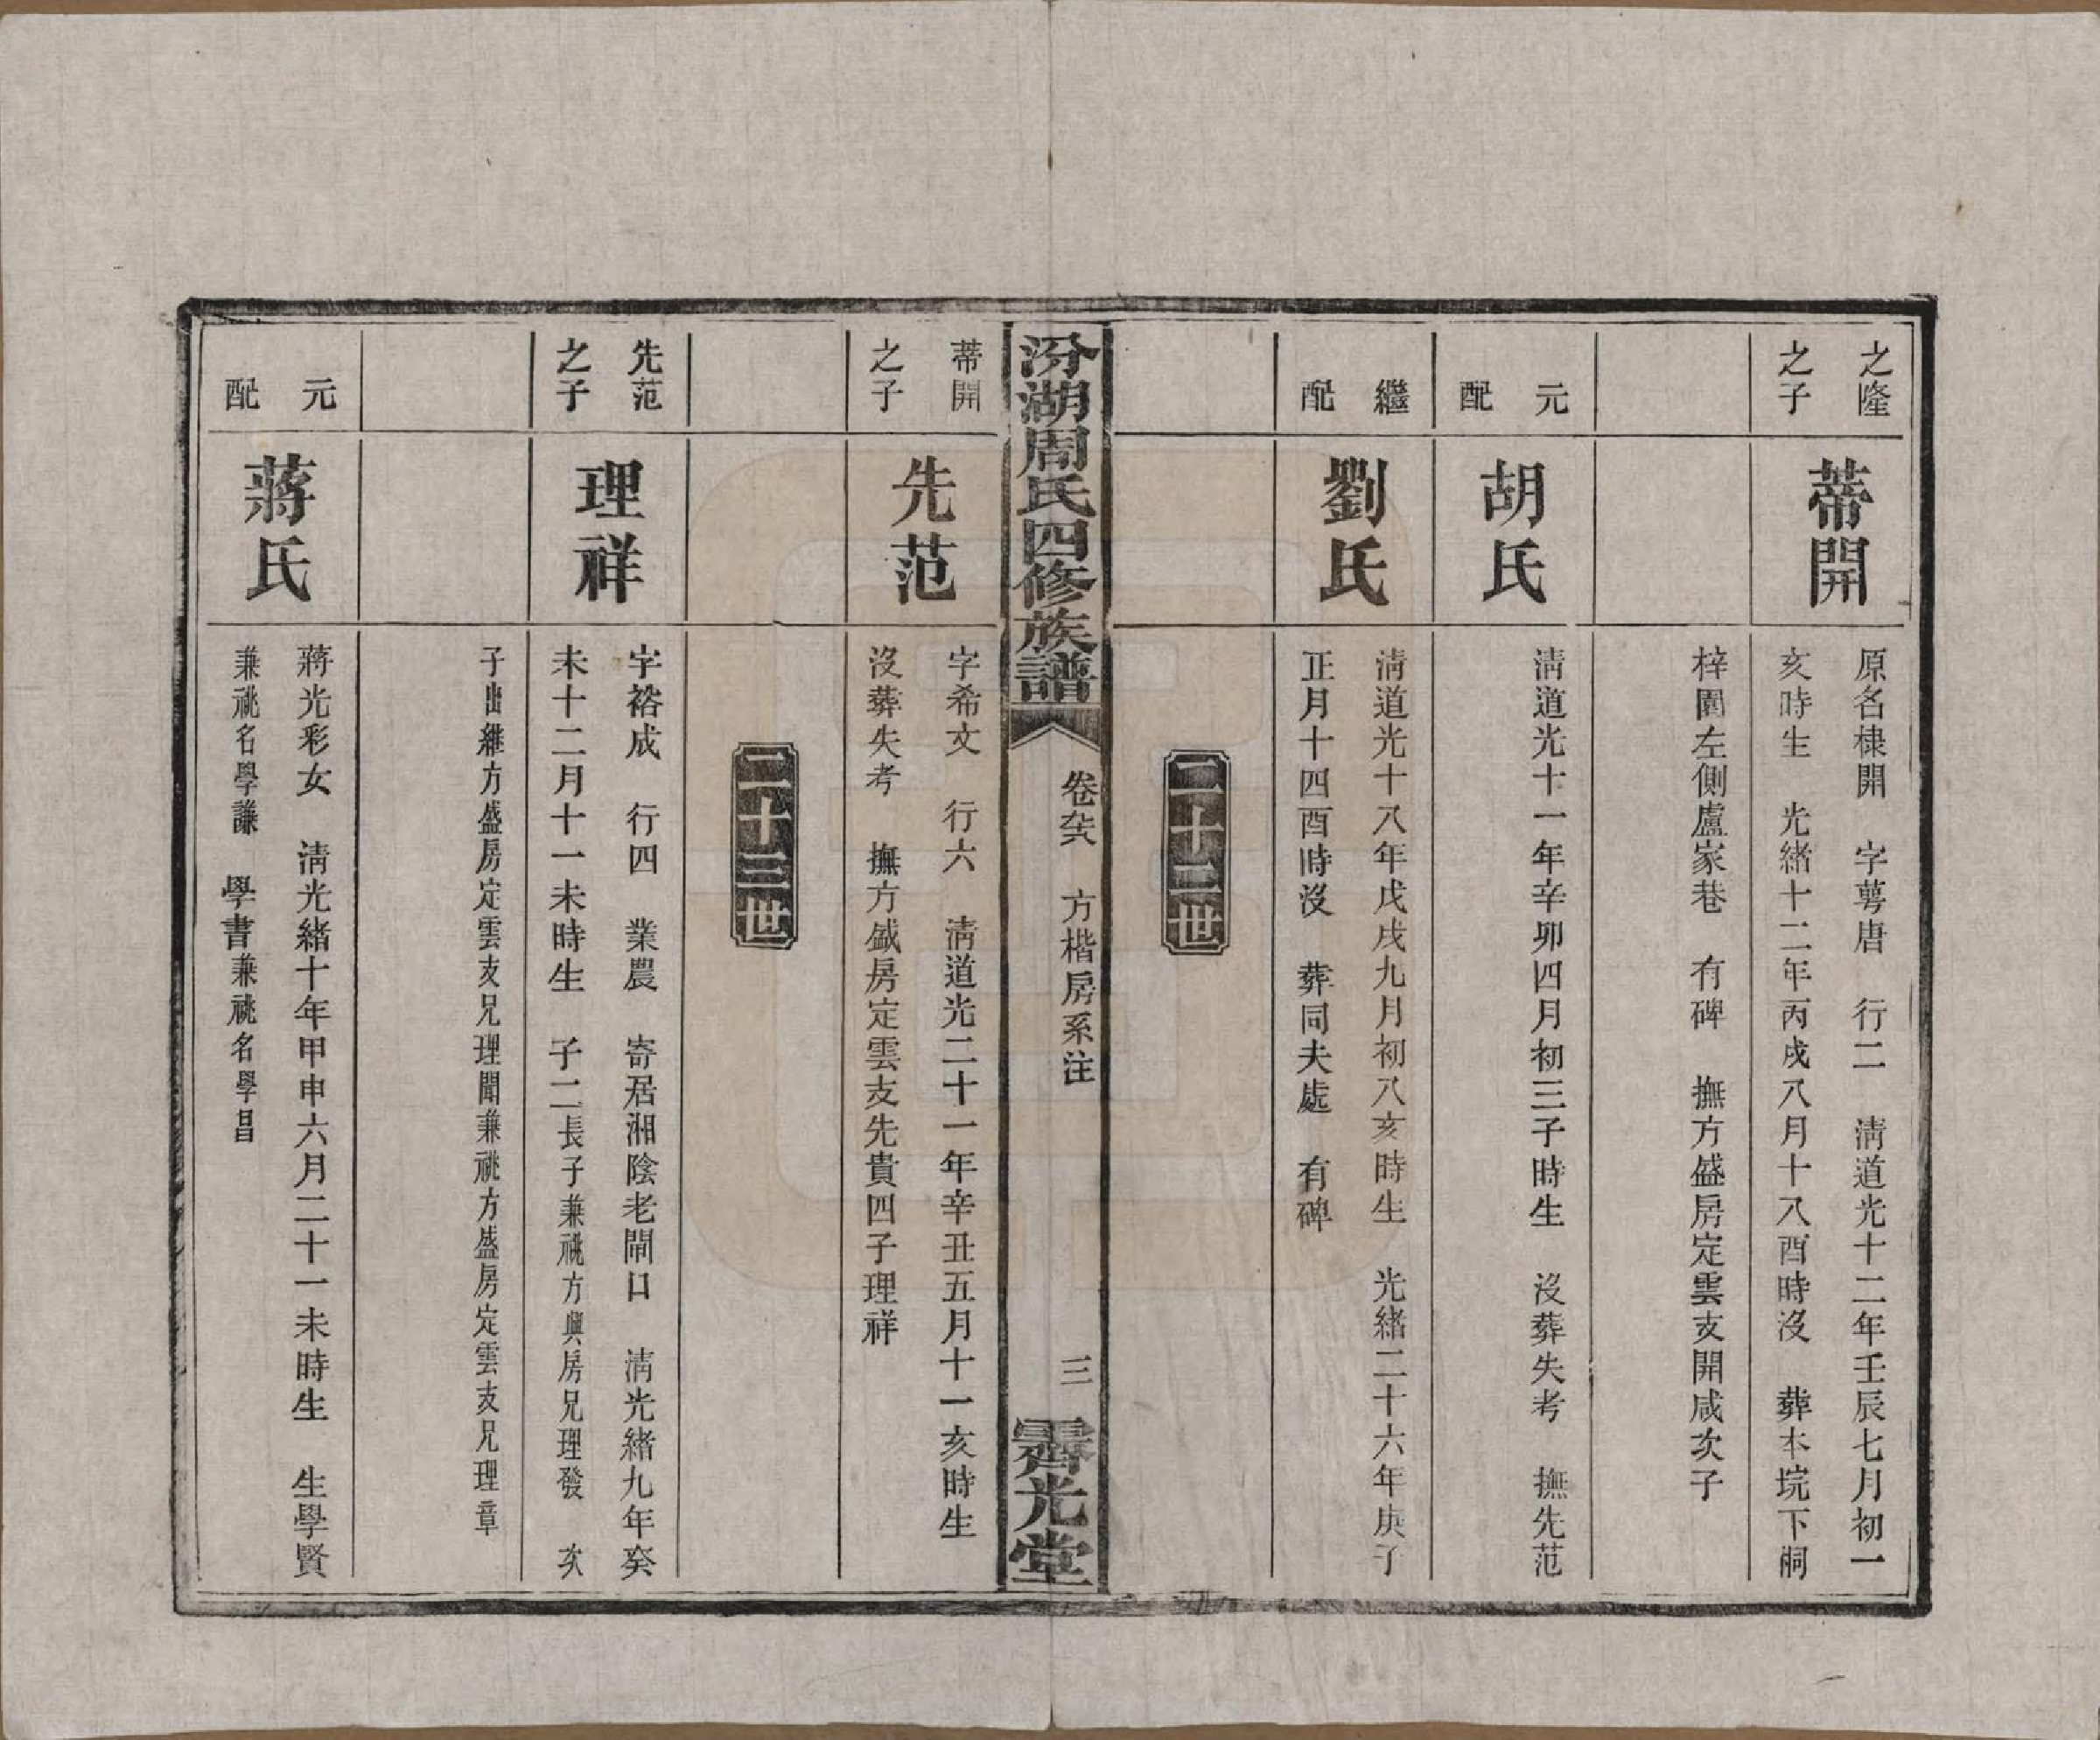 之隆
之子
蒂開
原名棣開　字萼唐　行二　淸道光十二年壬辰七月初一
亥時生　光緒十二年丙戌八月十八酉時沒　葬本垸下嗣
梓園左側盧家巷　有碑　撫方盛房定雲支開咸次子
元
配
胡氏
淸道光十一年辛卯四月初三子時生　沒葬失考　撫先范
繼
配
劉氏
淸道光十八年戊戌九月初八亥時生　光緒二十六年庚子
正月十四酉時沒　葬同夫處　有碑
二十二世
汾湖周氏四修族譜
卷　方楷房系注
三
霽光堂
蒂開
之子
先范
字希文　行六　淸道光二十一年辛丑五月十一亥時生
沒葬失考　撫方盛房定雲支先貴四子理祥
二十三世
先范
之子
理祥
字裕成　行四　業農　寄居湘陰老閘口　淸光緒九年癸
未十二月十一未時生　子二長子兼祧方興房兄理發　次
子出繼方盛房定雲支兄理聞兼祧方盛房定雲支兄理章
元
配
蔣氏
蔣光彩女　淸光緒十年甲申六月二十一未時生　生學賢
兼祧名學謙　學書兼祧名學昌